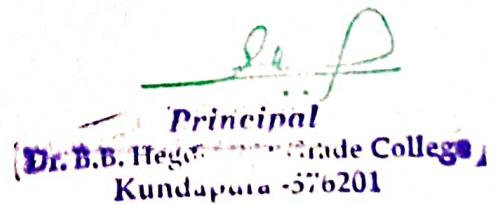 Principal
Dr. B.B. Hegde College,
Kundapura -576201